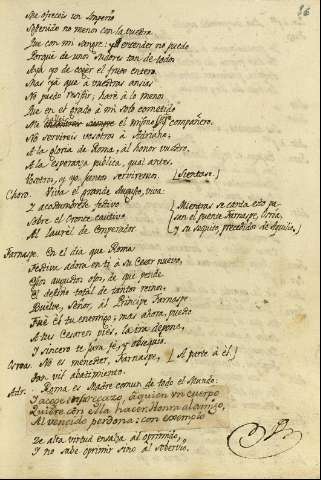 26
Me ofreceis un Imperio
Obtenido no menos con la vuestra
Que con mi sangre: y entender no puedo
Porque de unos sudores tan de todos
Aya yo de coger el fruto entero.
Mas ya que à vuestras ansias
No puedo resistir; haré à lo menos
Que en el grado à mi solo cometido
Me el mismo compañero.
No servireis vosotros à Adriano;
A la gloria de Roma, al honor vuestro,
A la esperanza publica, qual antes,
Vosotros, y yo juntos serviremos. [Sientase.]
Choro. Viva el grande Augusto, viva:
Y acostumbrese festivo
Sobre el Oronte cautivo
Al laurèl de Emperador
(Mientras se canta esto pa-
san el puente Farnaspe, Osroa,
y su sequito, precedidos de Aquilio,)
Farnaspe. En el dia que Roma
Festiva adora en ti à su Cesar nuevo,
Ojos augustos
El destino fatal de tantos reinos,
Buelve, Señor, àl Principe Farnaspe
Fuè èl tu enemigo; mas ahora, puesto
A tus Cesareos pies, la ira depone,
Y sincero te jura fe, y obsequio.
Osroa. No es menester, Farnaspe, [Al parte à èl]
Tan vil abatimiento.
Adr. Roma es Madre comun de todo el Mundo:
Y acoge sin rechazo, à quien un cuerpo
Quiere con ella hacer. Honra al amigo,
Al vencido perdona: con exemplo
De alta virtud ensalza al oprimido,
Y no sabe oprimir sino al sobervio.